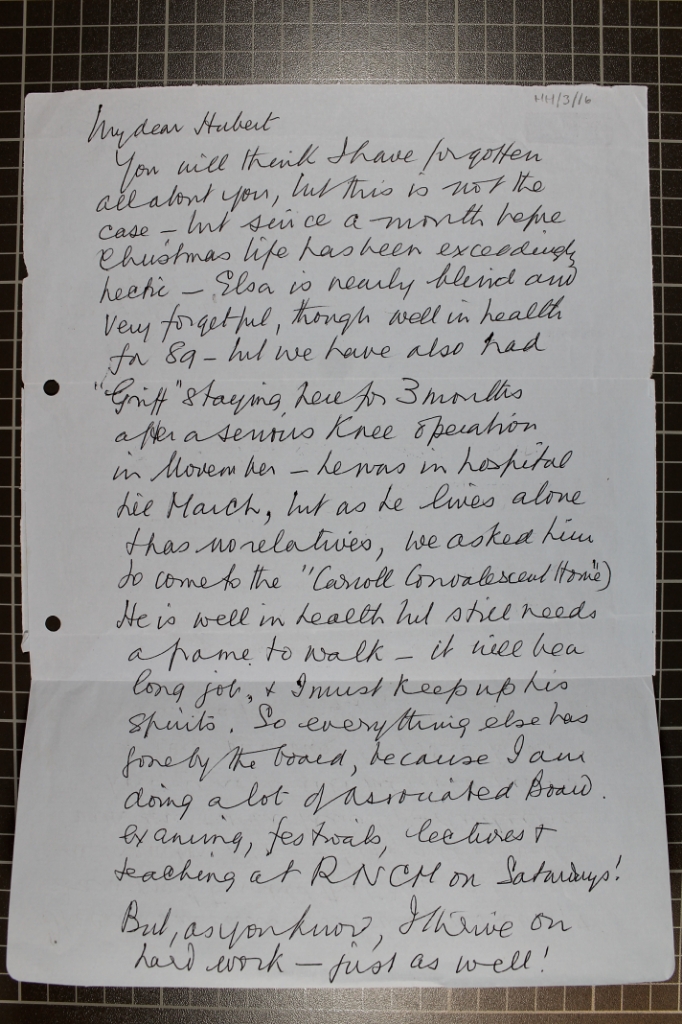 HH/3/16
My dear Hubert
You will think I have forgotten
all about you, but this is not the
case – but since a month before
Christmas life has been exceedingly
hectic – Elsa is nearly blind and
very forgetful, though well in health
for 89 – but we have also had
"Griff" staying here for 3 months
after a serious Knee operation
in November – he was in hospital
till March, but as he lives alone
& has no relatives, we asked him
to come to the "Carroll Convalescent Home")
He is well in health but still needs
a frame to walk – it will be a
long job, & I must keep up his
spirits. So everything else has
gone by the board, because I am
doing a lot of Associated Board.
examing, festivals, lectures &
teaching at RNCM on Saturdays!
But, as you know, I thrive on
hard work – just as well!